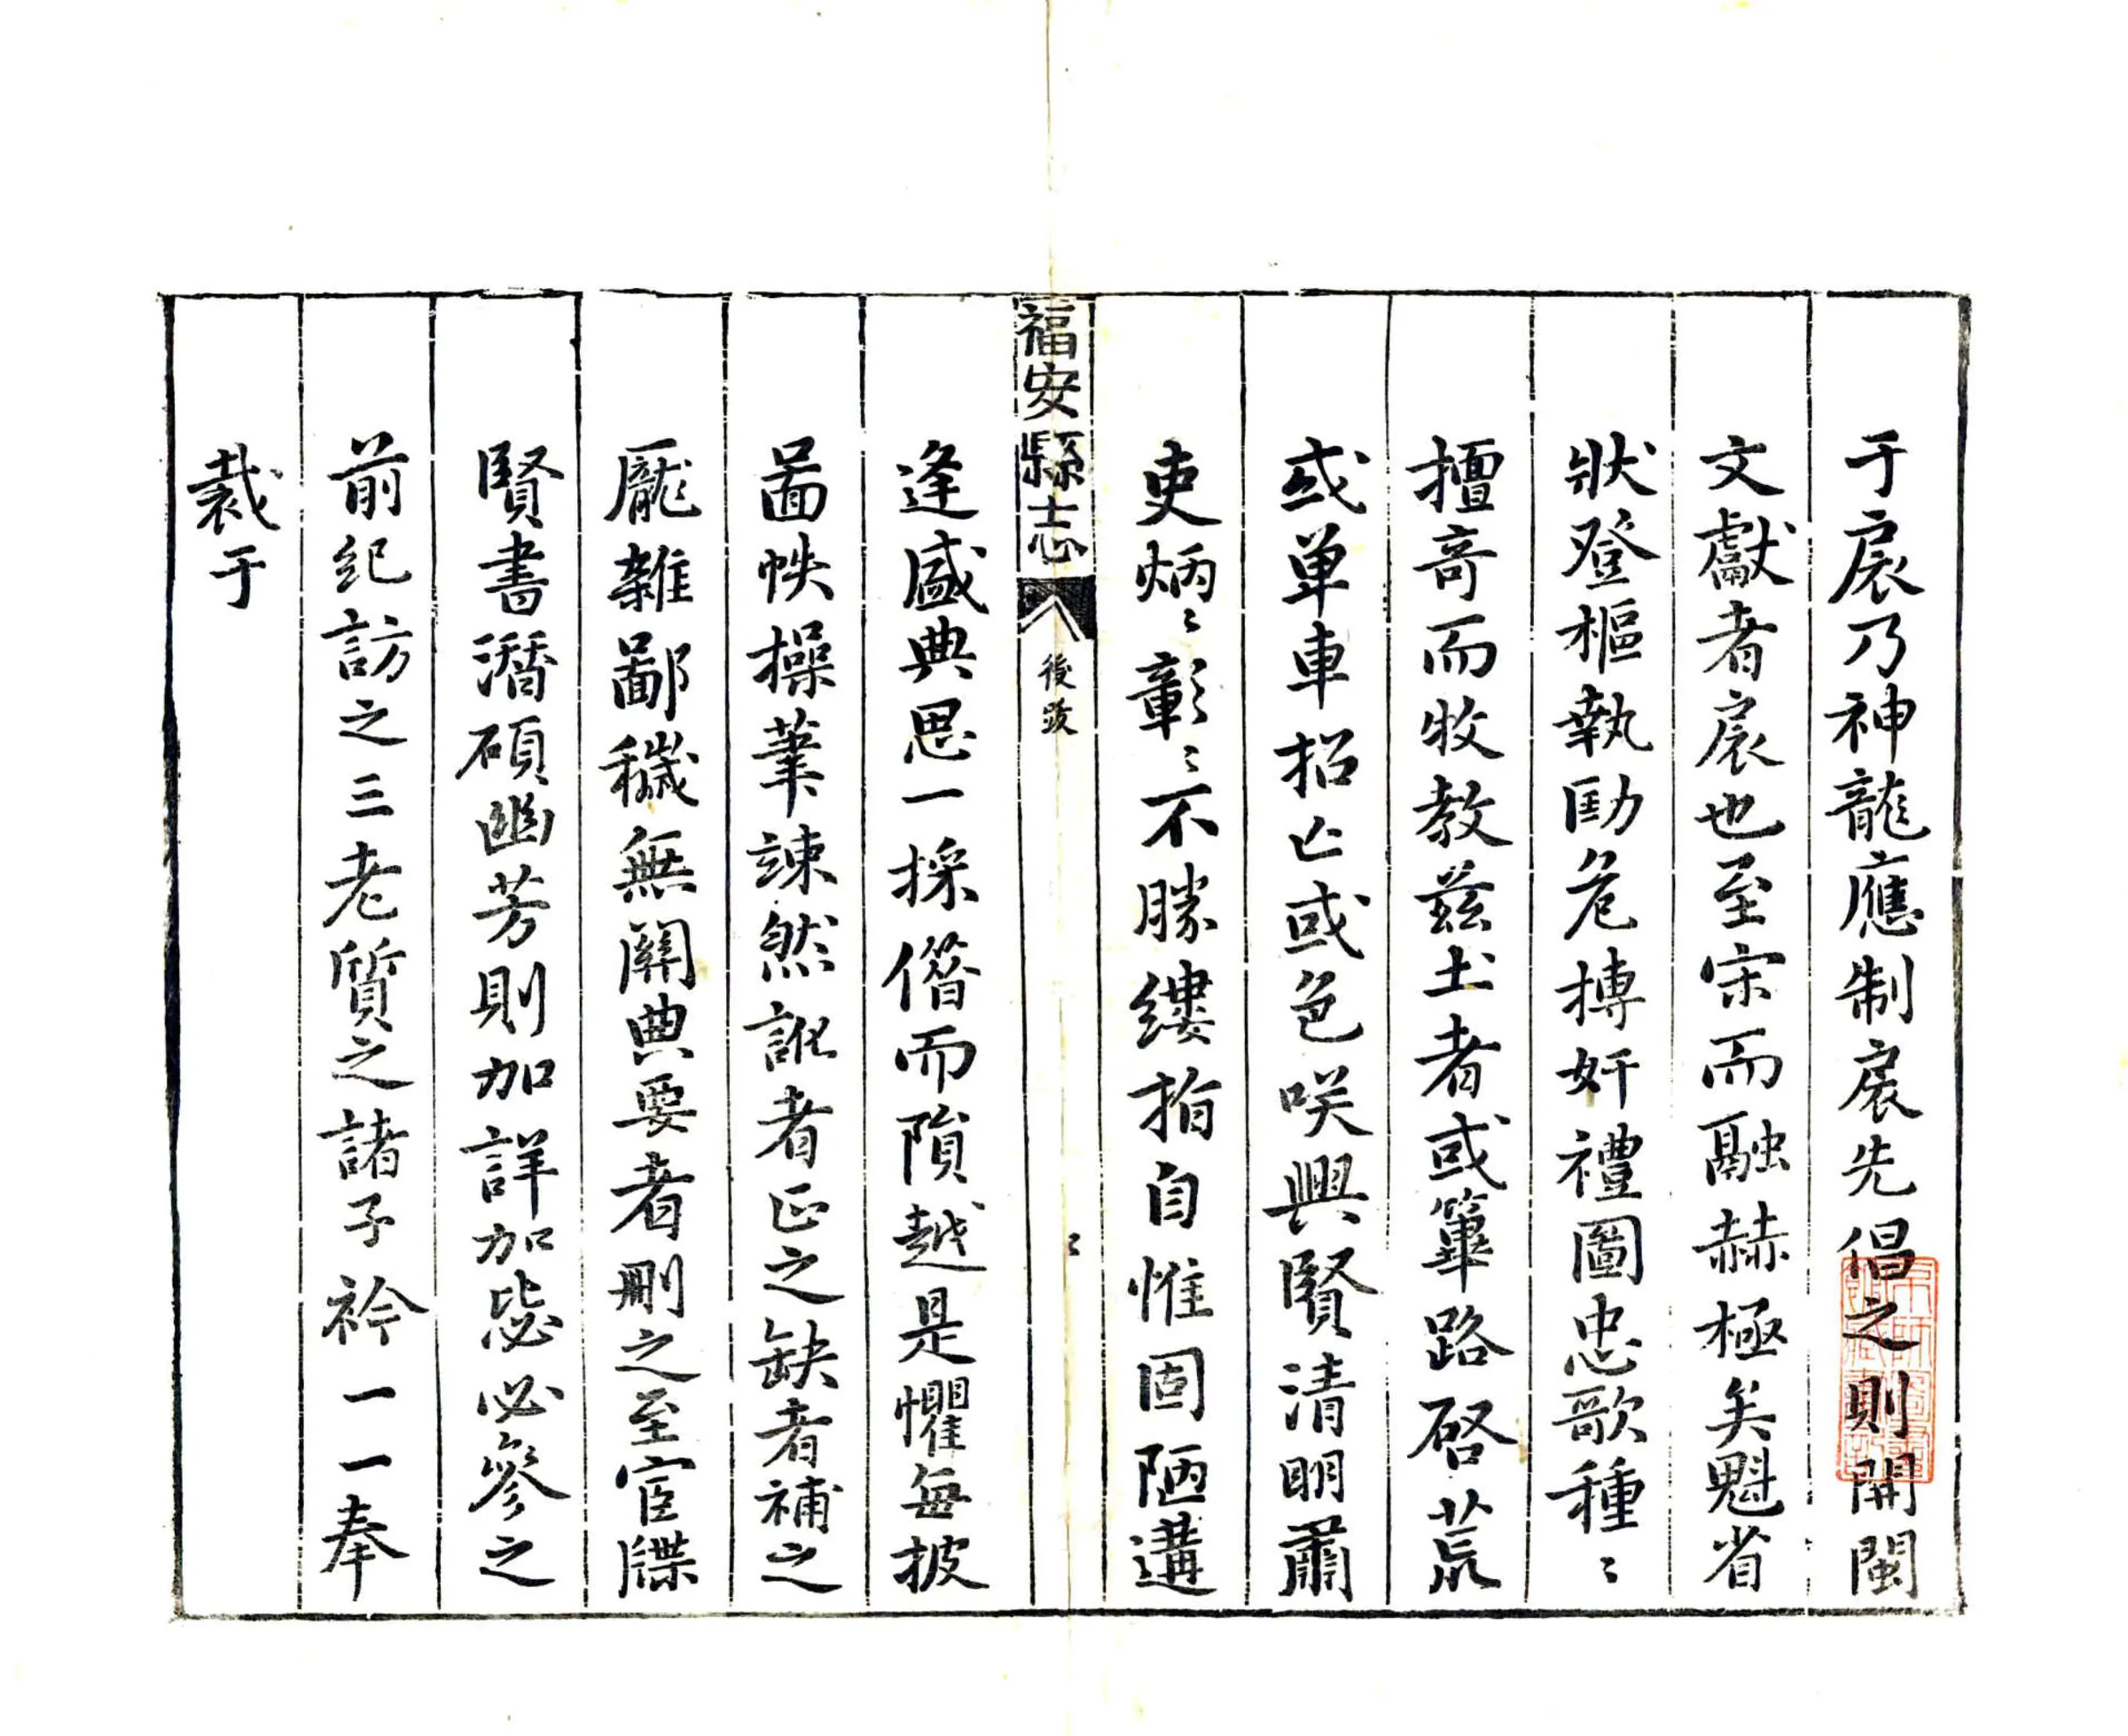 于扆乃神龍應制扆先倡之則開閩
文獻者扆也至宋而融赫極矣魁省
狀登樞執勛危摶奸禮圖忠歌種〻
擅奇而牧教茲土者或篳路啓荒
或单車招亡或色咲興賢清明肅
吏炳〻彰〻不勝縷指自惟固陋遘
福安縣志
後跋
二
逢盛典思一採僭而隕越是懼每披
啚帙操筆竦然訛者正之缺者補之
厖雜鄙穢無關典要者刪之至宦牒
賢書潛碩幽芳則加詳加毖必參之
前紀訪之三老質之諸子衿一一奉
裁于